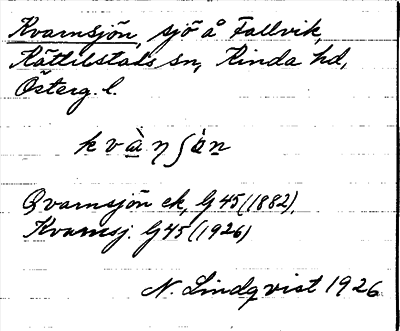 Kvarnsjön, sjö å Fallvik,
Kättilstads sn, Kinda hd,
Österg. l.
kvà̠ηʃὰ̠n̠
Qvarnsjön ek, G 45 (1882),
Kvarnsj. G 45 (1926)
N. Lindqvist 1926